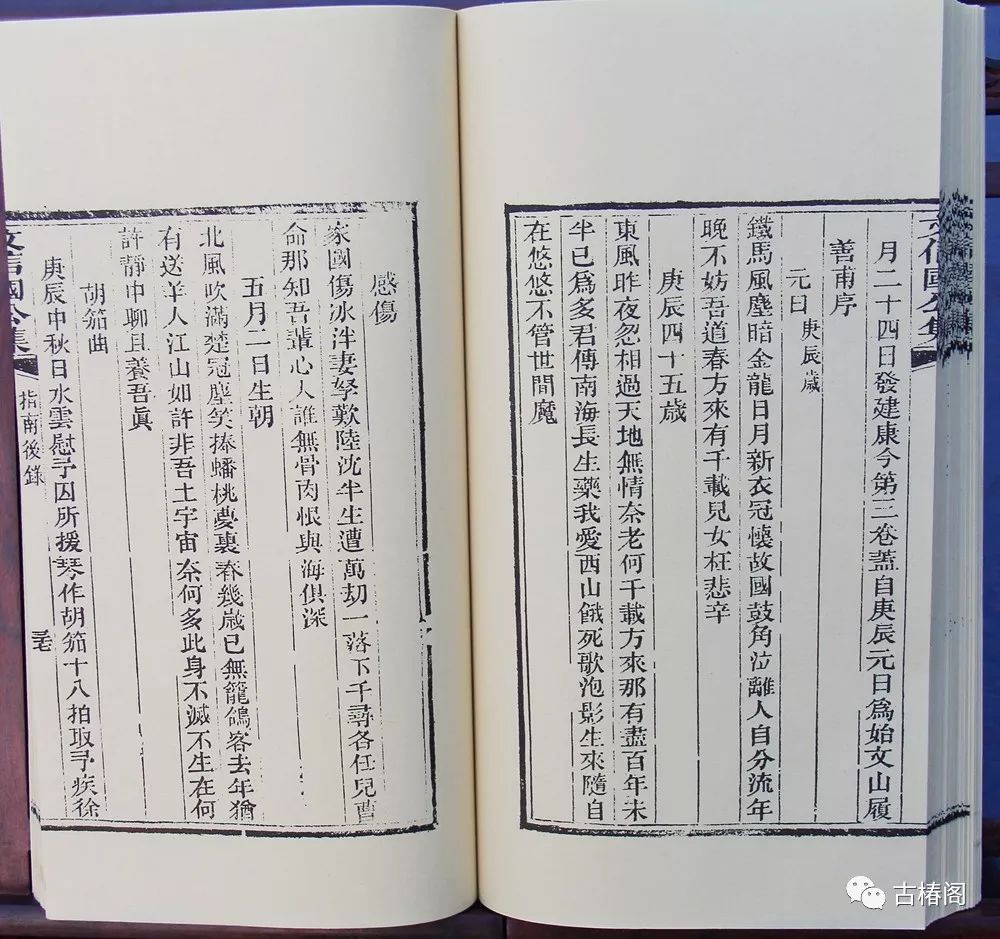 月二十四日發建康今第三卷蓋自庚辰元日爲始文山履
善甫序
元日 庚辰歲
鐵馬風塵暗金龍日月新衣冠懷故國鼓角泣離人自分流年
晚不妨吾道春方來有千載兒女枉悲辛
庚辰四十五歲
東風昨夜忽相過天地無情奈老何千載方來那有盡百年未
半已爲多君傳南海長生藥我愛西山餓死歌泡影生來隨自
在悠悠不管世間魔
感傷
家國傷冰泮妻孥歎陸沈半生遭萬劫一落下千尋各任兒曹
命那知吾輩心人誰無骨肉恨與海俱深
五月二日生朝
北風吹滿楚冠塵笑捧蟠桃夢裏春幾歲已無籠鴿客去年猶
有送羊人江山如許非吾土宇宙奈何多此身不滅不生在何
許靜中聊且養吾眞
胡笳曲
庚辰中秋日水雲慰予囚所援琴作胡笳十八拍取予疾徐
文信國公集
指南後錄
古椿阁